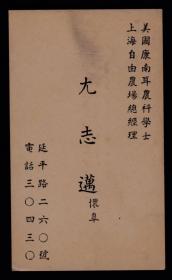 美國康南耳農科學士
上海自由農場總經理
尤志邁
懷皐
延平路二六〇號
電話三〇四三〇